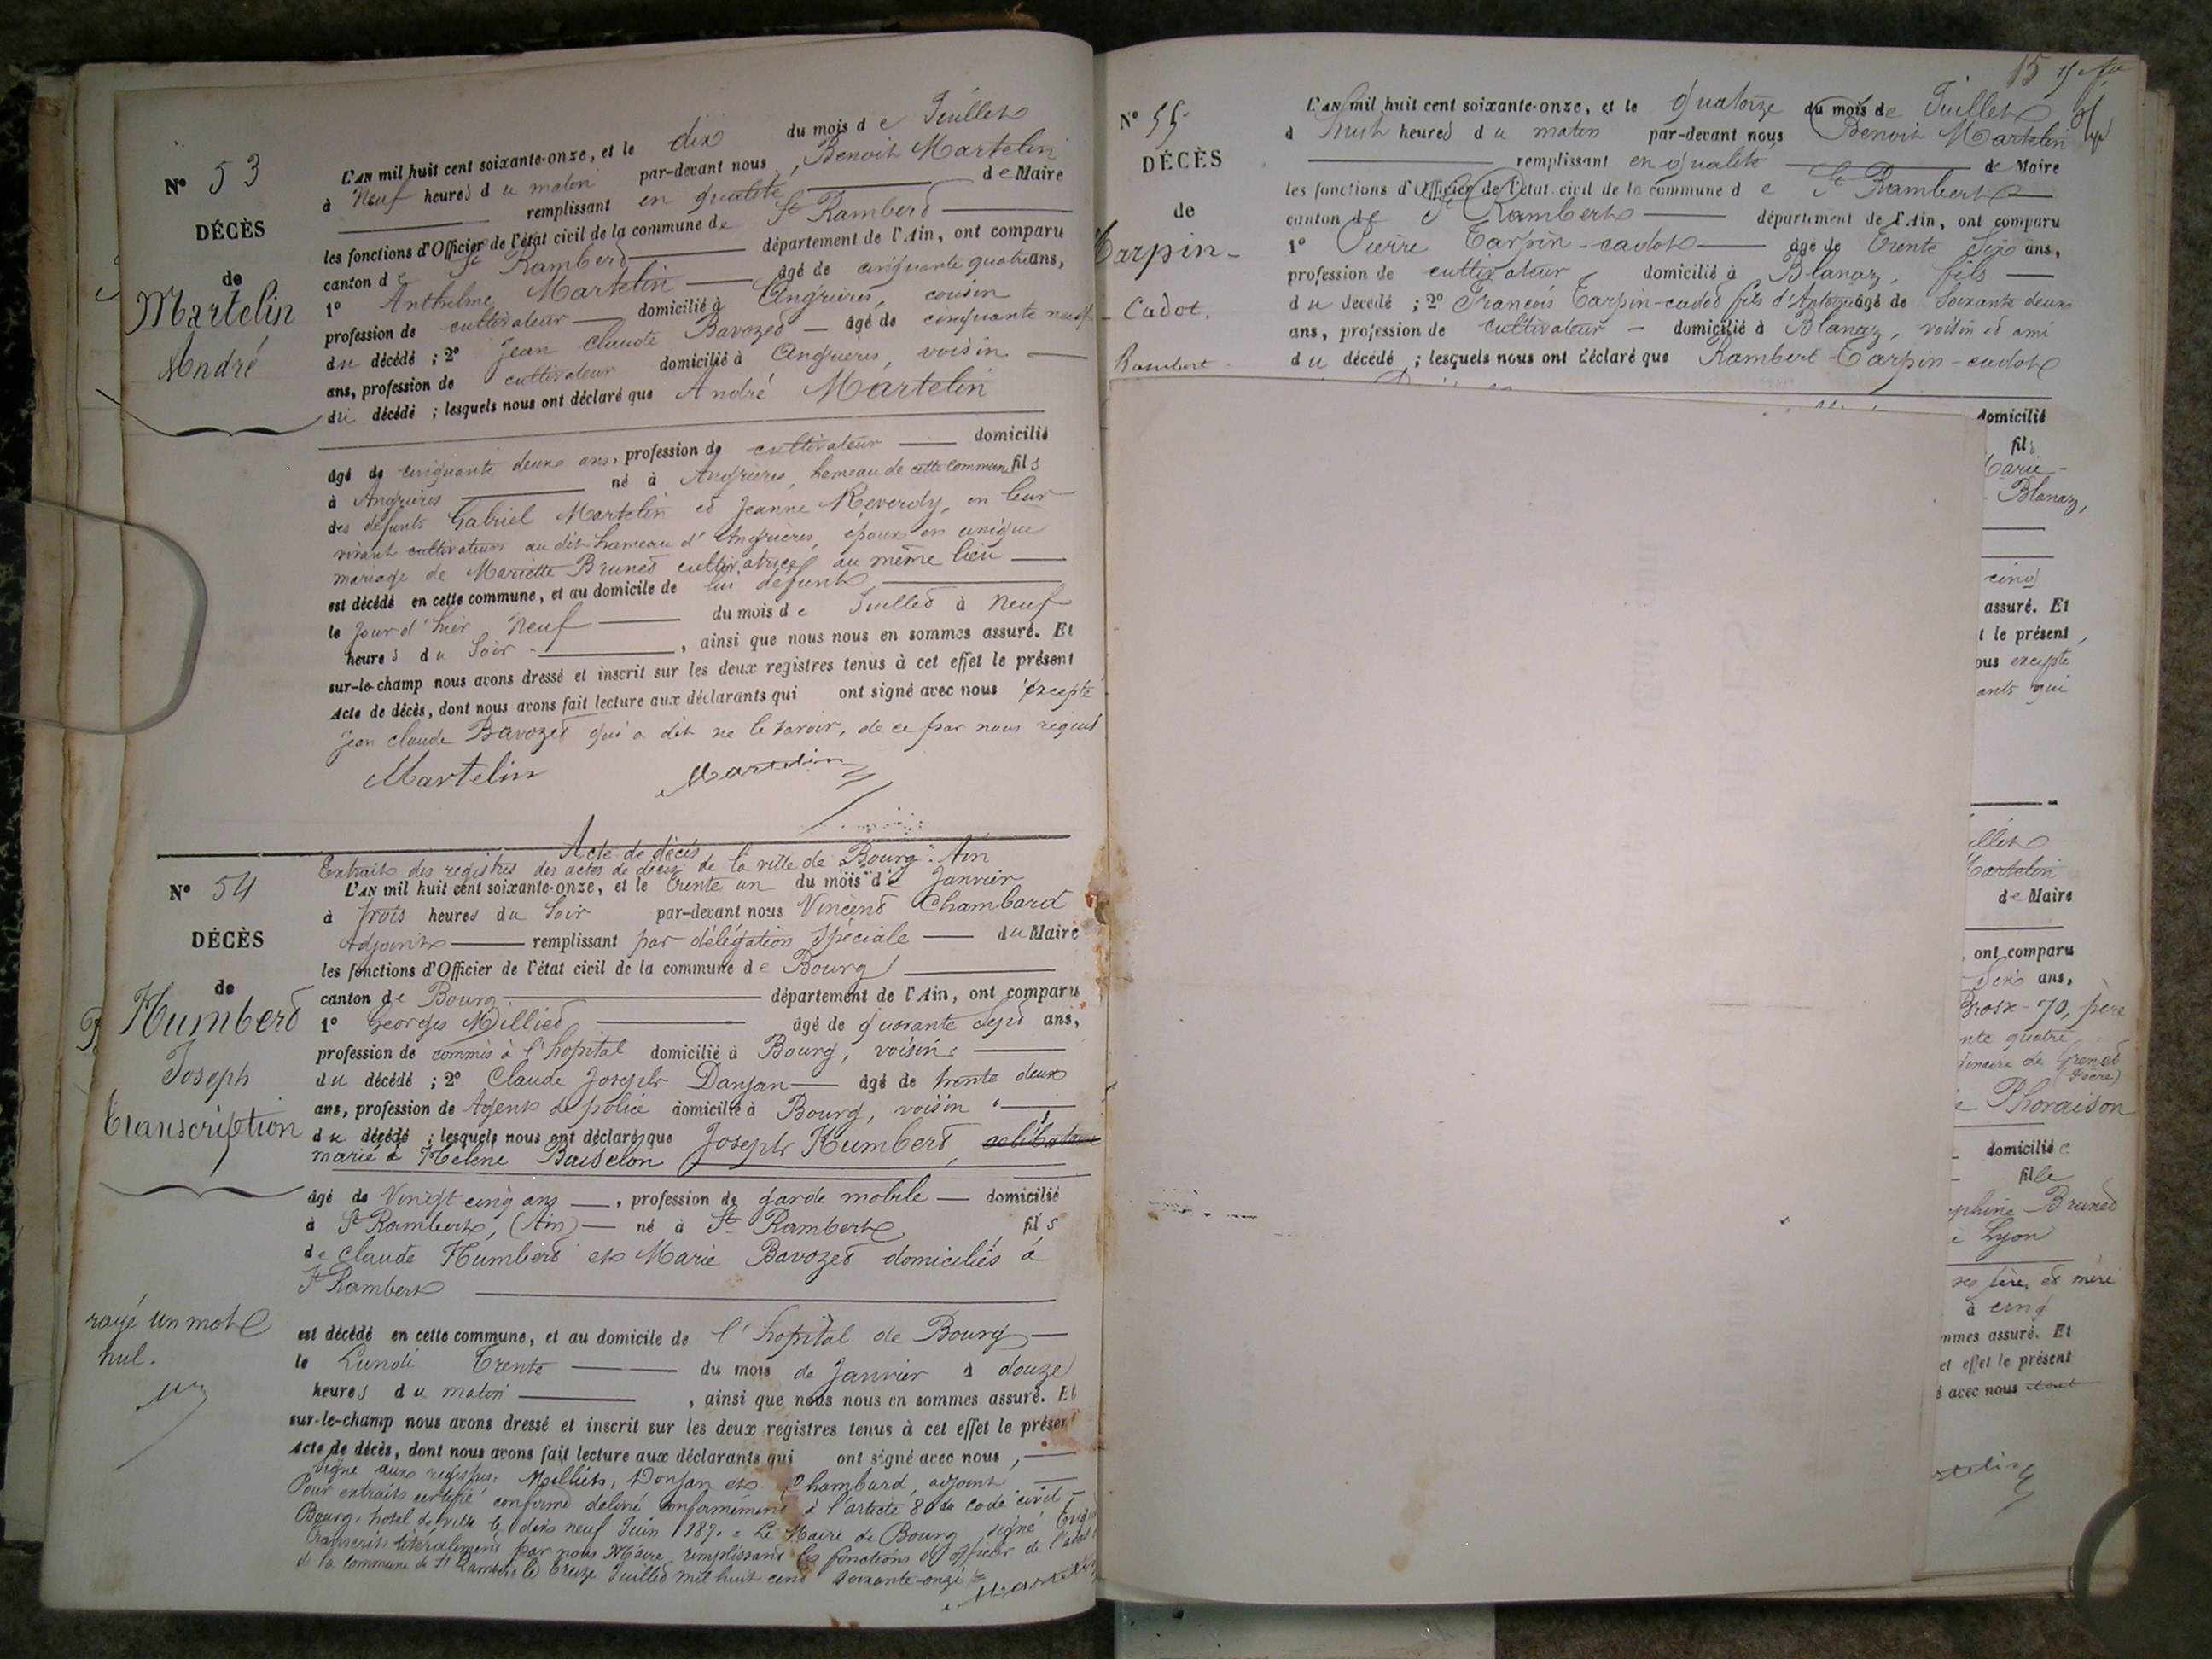 N° 53
DÉCÈS
de
Martelin
André
L'AN mil huit cent soixante-onze, et le dix du mois de Juillet
à Neuf heures du matin par-devant nous, Benoit Martelin
remplissant en qualité de Maire
les fonctions d'Officier de l'état civil de la commune de St Rambert
canton de St Rambert département de l'Ain, ont comparu
1° Anthelme Martelin âgé de cinquante quatre ans,
profession de cultivateur domicilié à Angrières, cousin
du décédé ; 2° Jean Claude Bavozet âgé de cinquante neuf
ans, profession de cultivateur domicilié à Angrières, voisin
du décédé ; lesquels nous ont déclaré que André Martelin
âgé de cinquante deux ans, profession de cultivateur domicilié
à Angrières né à Angrières, hameau de cette commune fils
des défunts Gabriel Martelin et Jeanne Reverdy, en leur
vivant cultivateurs au dit hameau d'Angrières, époux en unique
mariage de Mariette Brunet cultivatrice au même lieu
est décédé en cette commune, et au domicile de lui défunt,
le jour d'hier neuf du mois de Juillet à neuf
heures du soir, ainsi que nous nous en sommes assuré. Et
sur-le-champ nous avons dressé et inscrit sur les deux registres tenus à cet effet le présent
Acte de décès, dont nous avons fait lecture aux déclarants qui ont signé avec nous excepté
Jean Claude Bavozet qui a dit ne le savoir, de ce par nous requis
Martelin Martelin
Acte de décès
Extrait des registres des actes de décès de la ville de Bourg. Ain
N° 54
DÉCÈS
de
Humbert
Joseph
Transcription
L'AN mil huit cent soixante-onze, et le trente un du mois de Janvier
à trois heures du soir par-devant nous Vincent Chambard
Adjoint remplissant par délégation spéciale du Maire
les fonctions d'Officier de l'état civil de la commune de Bourg
canton de Bourg département de l'Ain, ont comparu
1° Georges Milliet âgé de quarante sept ans,
profession de commis à l'hopital domicilié à Bourg, voisin
du décédé ; 2° Claude Joseph Danjan âgé de trente deux
ans, profession de Agent de police domicilié à Bourg, voisin
du décédé ; lesquels nous ont déclaré que Joseph Humbert, célibataire
marié à Hélène Baiselon
âgé de Vingt cinq ans, profession de garde mobile domicilié
à St Rambert, (Ain) né à St Rambert, fils
de Claude Humbert et Marie Bavozet domiciliés à
St Rambert
rayé un mot
nul.
est décédé en cette commune, et au domicile de l'hopital de Bourg
le Lundi trente du mois de Janvier à douze
heures du matin, ainsi que nous nous en sommes assuré. Et
sur-le-champ nous avons dressé et inscrit sur les deux registres tenus à cet effet le présent
Acte de décès, dont nous avons fait lecture aux déclarants qui ont signé avec nous,
signé aux registres. Milliet, Danjan et Chambard, adjoint
Pour extrait certifié conforme délivré conformément à l'article 80 du code civil
Bourg, hotel de ville le dix neuf Juin 187. Le Maire de Bourg signé
Transcrit littéralement par nous Maire remplissant les fonctions d'officier de l'état
d la commune de St Rambert le treize Juillet mil huit cent soixante-onze
Martelin
15
N° 55
DÉCÈS
de
Tarpin-
Cadot.
Rambert
L'AN mil huit cent soixante-onze, et le quatorze du mois de Juillet
à huit heures du matin par-devant nous Benoit Martelin
remplissant en qualité de Maire
les fonctions d'Officier de l'état civil de la commune de St Rambert
canton de St Rambert département de l'Ain, ont comparu
1° Pierre Tarpin-cadot âgé de trente six ans,
profession de cultivateur, domicilié à Blanaz, fils
du décédé ; 2° François Tarpin-cadot fils d'Antoine âgé de soixante deux
ans, profession de cultivateur domicilié à Blanaz, voisin et ami
du décédé ; lesquels nous ont déclaré que Rambert-Tarpin-cadot
domicilié
fils
Marie-
Blanaz,
cinq
assuré. Et
t le présent
ous excepté
ants qui
uillet
Martelin
de Maire
, ont comparu
six ans,
70, père
nte quatre
de Grenet
(Isère)
e Phoraison
domicilié
fille
phine Brunet
à Lyon
père et mère
à cinq
mmes assuré. Et
et effet le présent
s avec nous